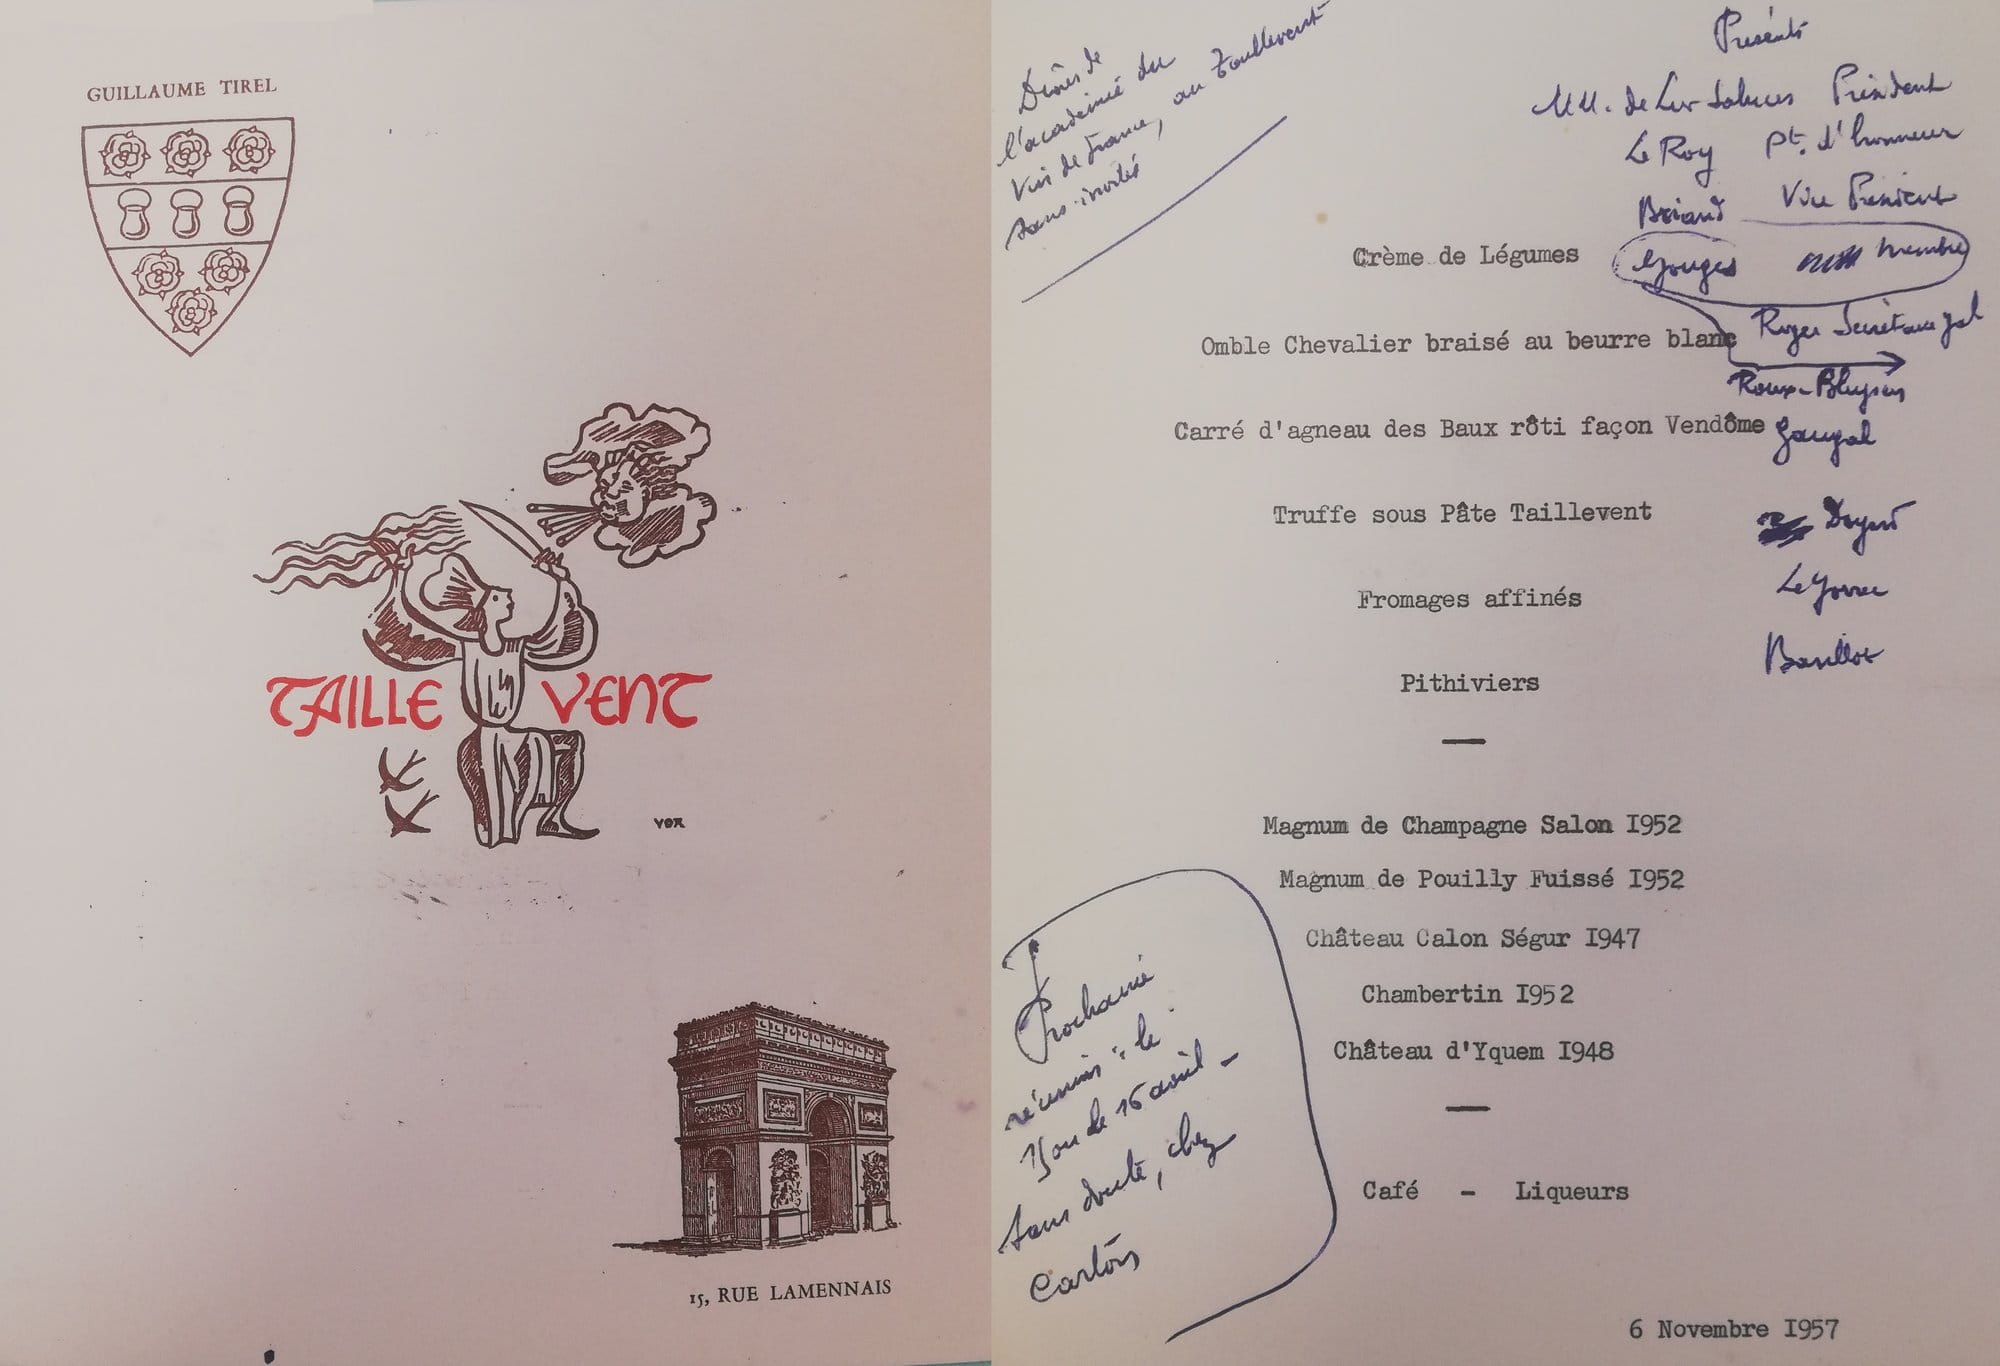 GUILLAUME TIREL
TAILLE VENT
VOX
15, RUE LAMENNAIS
Dîner de
l'académie du
Vin de France, au Taillevent
sans invités
Présents
MM. de Lur Saluces Président
Le Roy Pt. d'honneur
Briand Vice Président
Gouges membre
Roger Secrétaire gal
Roux-
Crème de Légumes
Omble Chevalier braisé au beurre blanc
Carré d'agneau des Baux rôti façon Vendôme
Truffe sous Pâte Taillevent
Fromages affinés
Pithiviers
Magnum de Champagne Salon I952
Magnum de Pouilly Fuissé I952
Château Calon Ségur I947
Chambertin I952
Château d'Yquem I948
Café - Liqueurs
6 Novembre I957
Prochaine
réunion : le
15 ou le 16 avril -
sans doute, chez